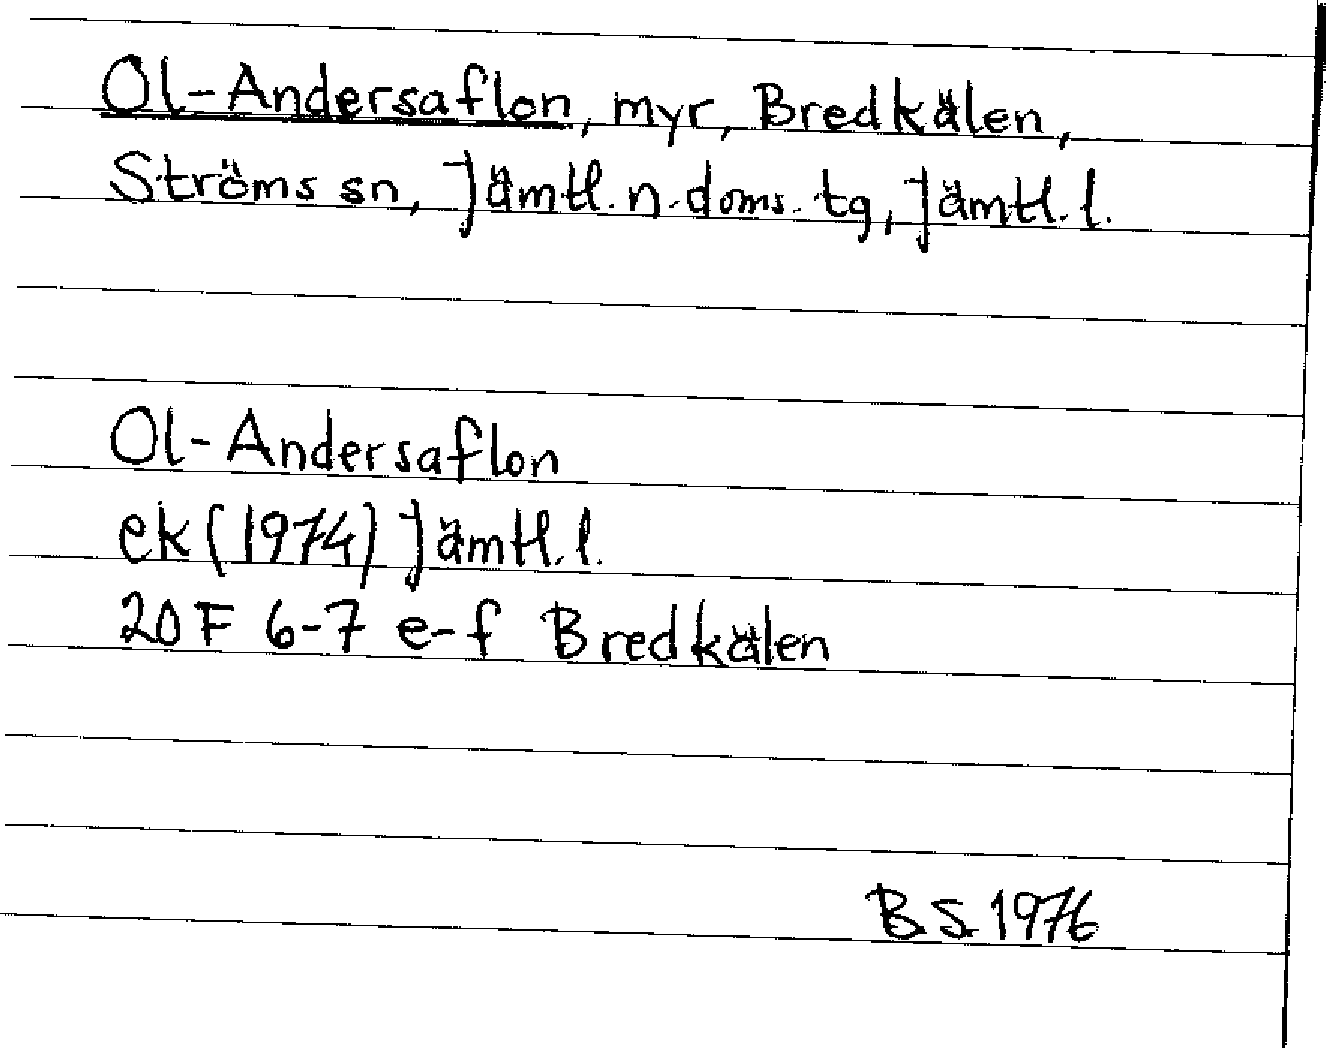 Ol-Andersaflon, myr, Bredkälen,
Ströms sn, Jämtl. n. doms. tg, Jämtl. l.
Ol-Andersaflon
ek (1974) Jämtl. l.
20F 6-7 e-f Bredkälen
B.S. 1976